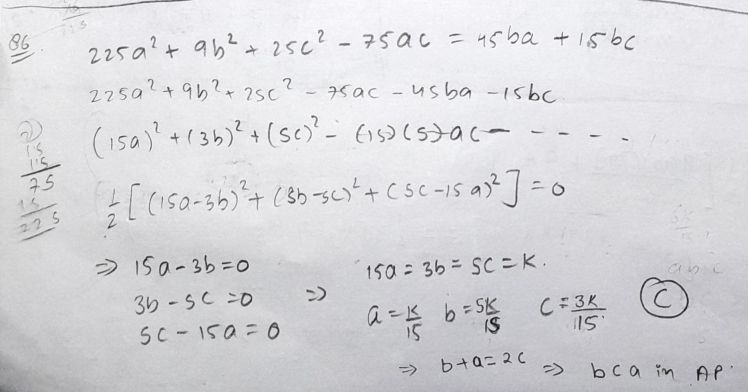 86
225a² + 9b² + 25c² - 75ac = 45ba + 15bc
225a² + 9b² + 25c² - 75ac - 45ba - 15bc
(15a)² + (3b)² + (5c)² - (15)(5)ac - - - - -
15
15
75
15
225
½ [(15a-3b)² + (3b-5c)² + (5c-15a)²] = 0
⇒ 15a-3b=0
3b-5c=0
5c-15a=0
⇒ 15a=3b=5c=K.
a=K/15 b=5K/15 c=3K/15
C
⇒ b+a=2c ⇒ b c a in AP.